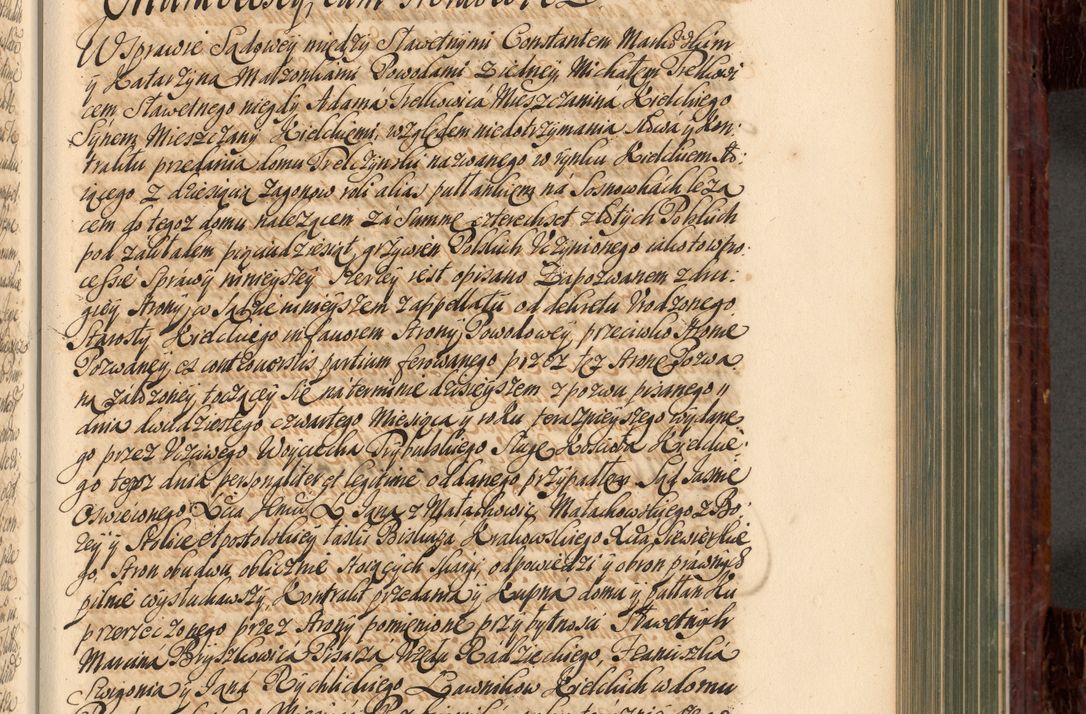 W Sprawie Sądowey między Sławetnymi Constantem
y Katarzyną Małzonkami Powodami z iedney, Michałem Trelkowi
cem Sławetnego niegdy Adama Trelkowicá Mieszczaniná Kielckiego
Synem Mieszczany Kielckiemi, względem niedotrzymania Słowá y Kon:
traktu przedania domu Trelczyński nazwanego w rynku Kielckiem sto:
iącego z dziesiącią zagonow roli alias pułłankiem na Sosnowkach leżą
cem do tegoż domu należącem za Summę czterechset złotych Polskich
pod zakładem pięciudziesiąt grzywien Polskich Uczynionego iako to w pro:
cessie Sprawy ninieyszey szerzey iest opisano Zapozwanem z dru:
giey strony, w Sądzie ninieyszem z appellaty od dekretu Urodzonego
Starosty Kielckiego in favorem Strony Powodowey, przeciwko Stronie
Pozwaney, ex controversiis partium ferowanego przez tęż Stronę Pozwa
ną założoney toczącey się na terminie dzisieyszem z pozwu pisanego
dnia dwudziestego czwartego Miesiąca y roku teraznieyszego wydane
go przez Uczciwego Woyciecha Trybulskiego Sługę Kościoła Kielckie:
go tegoż dnia personaliter et legitime oddanego przypadłey Sąd Jaśnie
Oświeconego Xcia Jmci X Jana z Małachowic Małachowskiego z Bo:
żey y Stolice Apostolskiey łaski Biskupa Krakowskiego Xcia Siewierskie
go, Stron obudwu oblicznie stoiących skargi, odpowiedzi y obron prawnych
pilnie wysłuchawszy, Kontrakt przedania y Kupná domu y pułłanku
przerzeczonego przez Strony pomienione przy bytności Sławetnych
Marciná Bryszkowica Pisarza Urzędu Radzieckiego, Franciszka
y Janá Rychlickiego Ławnikow Kielckich w domu